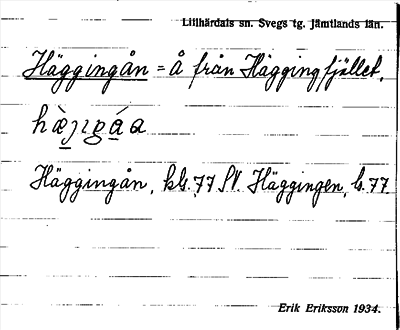 Lillhärdals sn. Svegs tg. Jämtlands län.
Häggingån = Å från Häggingfjället.
Häggingån, kb. 77 SV. Häggingen, b. 77
Erik Eriksson 1934.